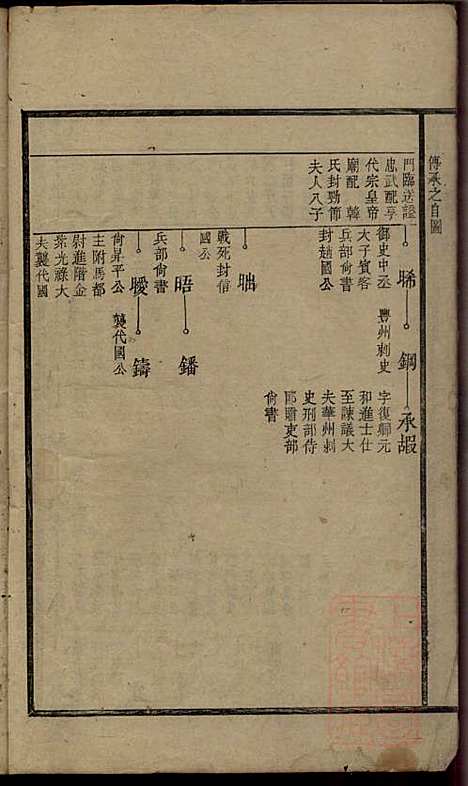 傳承之自圖
門臨送諡
忠武配享
代宗皇帝
廟配韓
氏封勁節
夫人八子
晞
御史中丞
大子賓客
兵部尙書
封趙國公
鋼
豐州刺史
承嘏
字復卿元
和進士仕
至諫議大
夫華州刺
史刑部侍
郎贈吏部
尙書
昢
戰死封信
國公
晤
兵部尙書
鐇
曖
尙昇平公
主附馬都
尉進階金
紫光祿大
夫襲代國
鑄
襲代國公